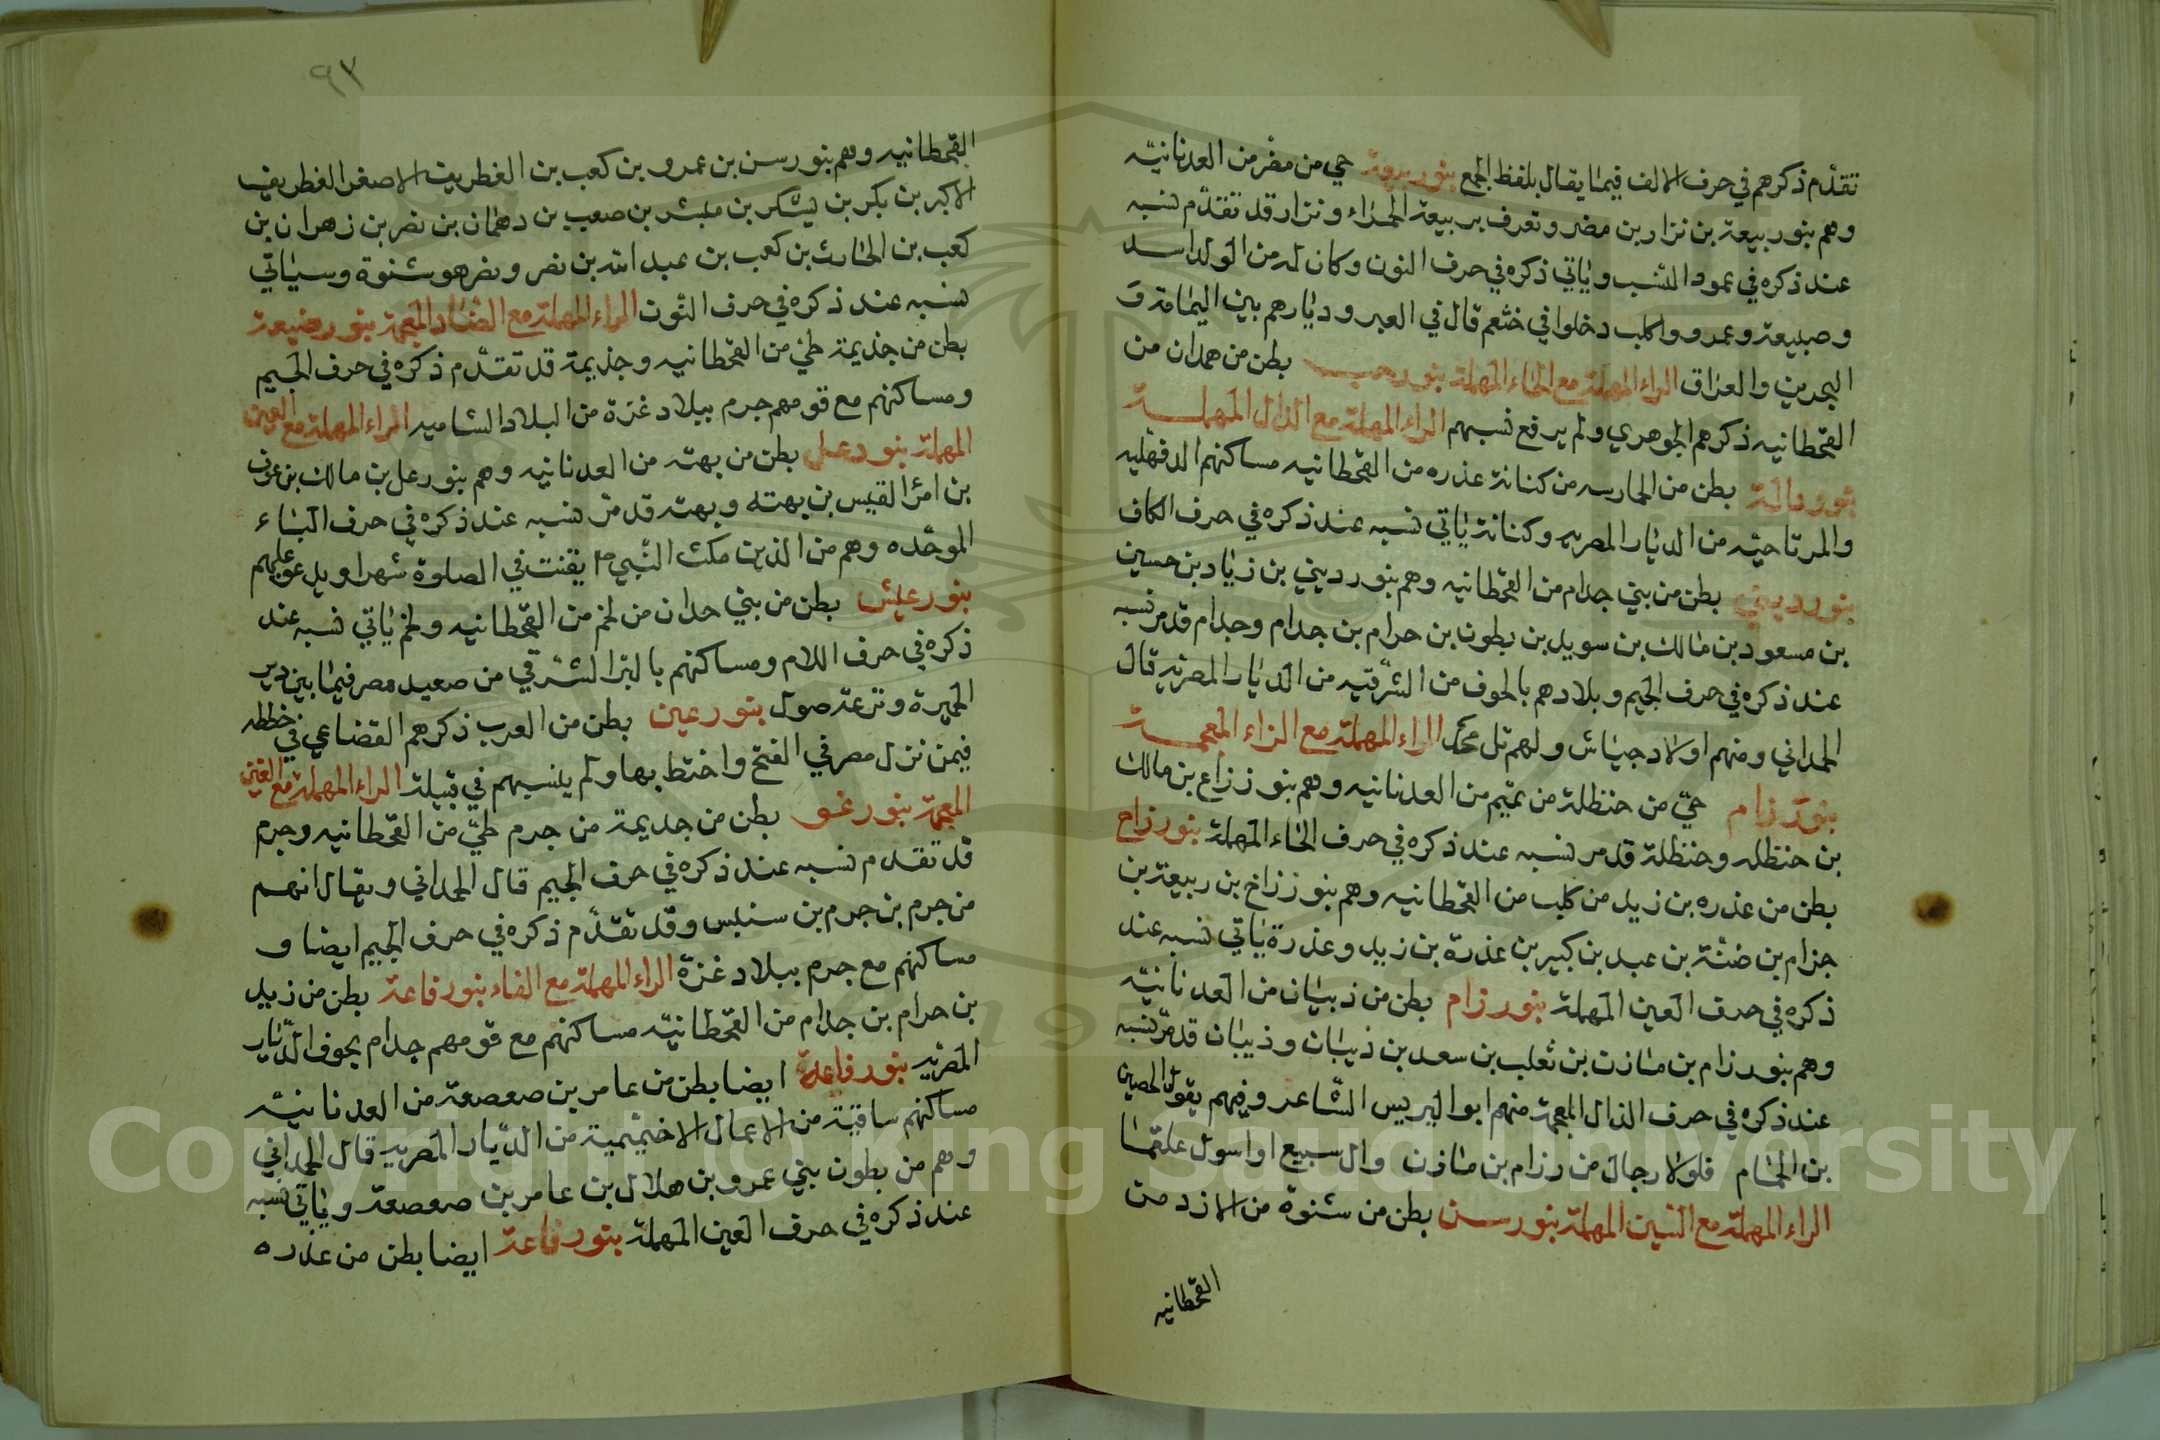 تقدّم ذكرهم في حرف الالف فيما يقال بلفظ الجمع بنو ربيعة حي من مضر من العدنانيّه
وهم بنو ربيعة بن نزار بن مضر وتعرف بربيعة الحمراء ونزار قد تقدّم نسبه
عند ذكره في عمود النسب وياتي ذكره في حرف النون وكان له من الولد اسد
وضبيعة وعمرو واكلب دخلوا في خثعم قال في العبر وديارهم بين اليمامة و
البحرين والعراق الراء المهملة مع الحاء المهملة بنو رحب بطن من همدان من
القحطانيه ذكرهم الجوهري ولم يرفع نسبهم الراء المهملة مع الدال المهملة
بنو ردالة بطن من الحارسه من كنانة عذره من القحطانيه مساكنهم الدقهليه
والمرتاحيّه من الديار المصريه وكنانة ياتي نسبه عند ذكره في حرف الكاف
بنو رديني بطن من بني جدام من القحطانيه وهم بنو رديني بن زياد بن حسين
بن مسعود بن مالك بن سويد بن بطون بن حرام بن جدام وجدام قد مر نسبه
عند ذكره في حرف الجيم وبلادهم بالحوف من الشرقيه من الديار المصريه قال
الحمداني ومنهم اولاد جياش ولهم تل محمد الراء المهملة مع الزاء المعجمة
بنو رزام حيّ من حنظلة من تميم من العدنانيه وهم بنو رزاع بن مالك
بن حنظله وحنظلة قد مر نسبه عند ذكره في حرف الحاء المهملة بنو رزاح
بطن من عذره بن زيد من كلب من القحطانيه وهم بنو رزاح بن ربيعة بن
حزام بن ضنّة بن عبد بن كبير بن عذرة بن زيد وعذرة ياتي نسبه عند
ذكره في حرف العين المهملة بنو رزام بطن من ذبيان من العدنانيّه
وهم بنو رزام بن مازن بن ثعلب بن سعد بن ذبيان وذبيان قد مرّ نسبه
عند ذكره في حرف الذال المعجمة منهم ابو البريس الشّاعر وفيهم يقول الحصين
بن الحمام فلولا رجال من رزام بن مازن وال سبيع او اسول علقما
الراء المهملة مع السين المهملة بنو رسن بطن من شنوة من الازد من
القحطانيه
٩٣
القحطانيه وهم بنو رسن بن عمرو بن كعب بن الغطريف الاصغر الغطريف
الاكبر بن بكر بن يشكر بن مبشر بن صعب بن دهمان بن نصر بن زهران بن
كعب بن الحارث بن كعب بن عبد الله بن نصر ونصر هو شنوة وسياتي
نسبه عند ذكره في حرف النون الراء المهملة مع الضاد المعجمة بنو رضيعة
بطن من جذيمة طي من القحطانيه وجذيمة قد تقدّم ذكره في حرف الجيم
ومساكنهم مع قومهم جرم ببلاد غزة من البلاد الشاميه الراء المهملة مع العين
المهملة بنو رعل بطن من بهته من العدنانيه وهم بنو رعل بن مالك بن عوف
بن امرا القيس بن بهته وبهته قد مرّ نسبه عند ذكره في حرف الباء
الموحّده وهم من الذين مكث النّبي صم يقنت في الصلوة شهرا ويدعو عليهم
بنو رعيش بطن من بني حدان من لخم من القحطانيه ولخم ياتي نسبه عند
ذكره في حرف اللام ومساكنهم بالبرّ الشرقي من صعيد مصر فيما بين دير
الحميرة وترعة صول بنو رعين بطن من العرب ذكرهم القضاعي في خططه
فيمن نزل مصر في الفتح واختط بها ولم ينسبهم في قبيلة الراء المهملة مع الغين
المعجمة بنو رغو بطن من جديمة من جرم طيّ من القحطانيه وجرم
قد تقدم نسبه عند ذكره في حرف الجيم قال الحمداني ويقال انهم
من جرم بن جرم بن سنبس وقد تقدّم ذكره في حرف الجيم ايضا و
مساكنهم مع جرم ببلاد غزة الراء المهملة مع الفاء بنو رفاعة بطن من زيد
بن حرام بن جذام من القحطانيّه مساكنهم مع قومهم جدام بحوف الدّيار
المصريه بنو رفاعة ايضا بطن من عامر بن صعصعة من العدنانيّه
مساكنهم ساقية من الاعمال الاخميمية من الدّيار المصريه قال الحمداني
وهم من بطون بني عمرو بن هلال بن عامر بن صعصعة وياتي نسبه
عند ذكره في حرف العين المهملة بنو رفاعة ايضا بطن من عذره
Copyright © King Saud University